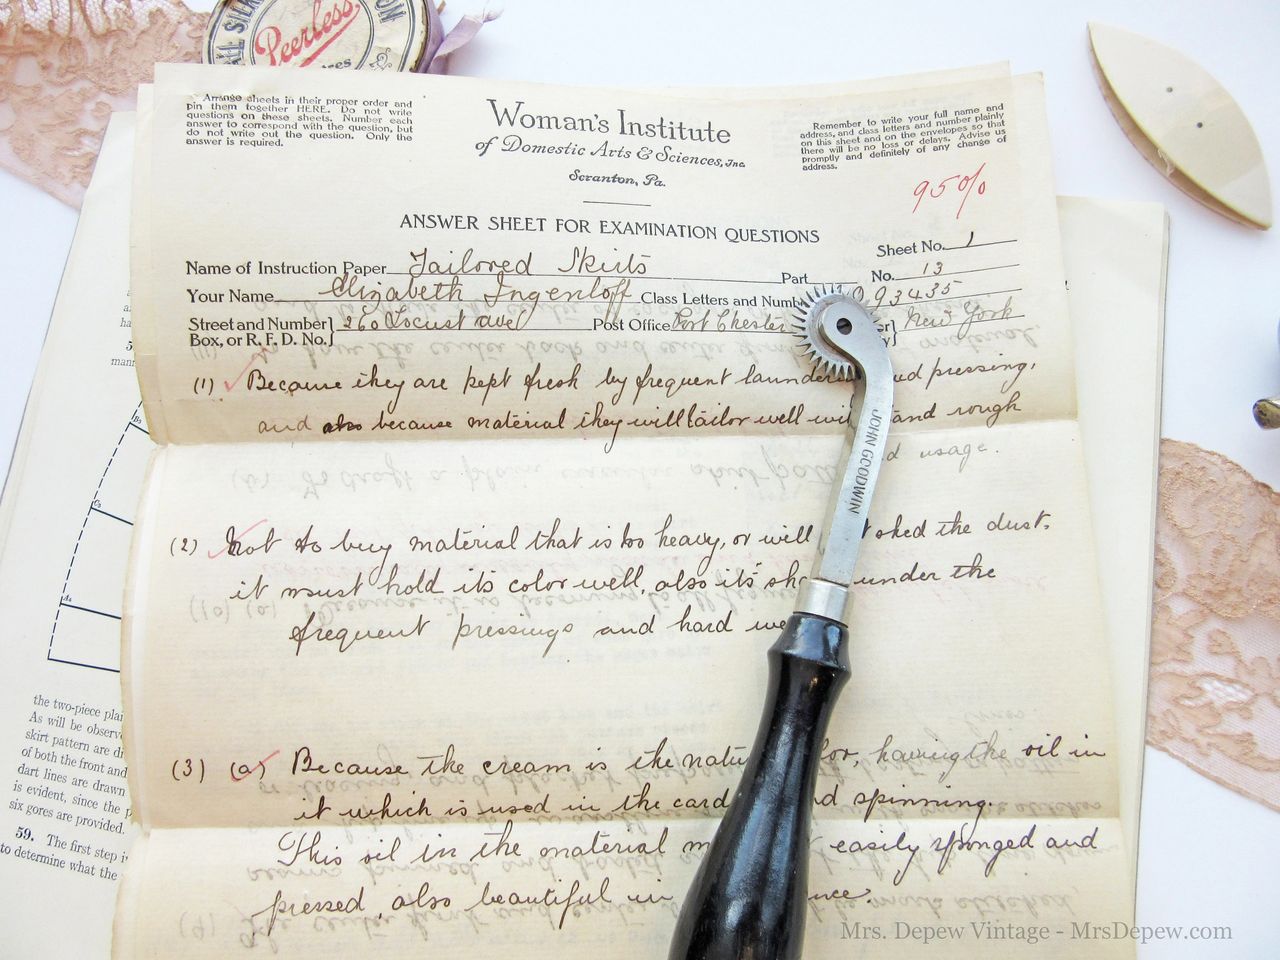 ALL SILK
Peerless
Arrange sheets in their proper order and
pin them together HERE. Do not write
questions on these sheets. Number each
answer to correspond with the question, but
do not write out the question. Only the
answer is required.
Woman's Institute
of Domestic Arts & Sciences, Inc.
Scranton, Pa.
Remember to write your full name and
address, and class letters and number plainly
on this sheet and on the envelopes so that
there will be no loss or delays. Advise us
promptly and definitely of any change of
address.
95%
ANSWER SHEET FOR EXAMINATION QUESTIONS
Sheet No. 1
Name of Instruction Paper Tailored Skirts Part No. 13
Your Name Elizabeth Ingenloff Class Letters and Numb 93435
Street and Number 260 Locust ave Post Office Port Chester New York
Box, or R. F. D. No.
(1) Because they are kept fresh by frequent launder pressing,
and also because material they will tailor well wi and rough
usage.
(2) Not to buy material that is too heavy, or will shed the dust.
it must hold its color well, also it's sh under the
frequent pressings and hard we
(3) (a) Because the cream is the natu or, having the oil in
it which is used in the card spinning.
This oil in the material m easily sponged and
pressed, also beautiful in
JOHN GOODWIN
the two-piece plai
As will be observ
skirt pattern are d
of both the front and
dart lines are drawn
is evident, since the p
six gores are provided.
59. The first step i
to determine what the
Mrs. Depew Vintage - MrsDepew.com